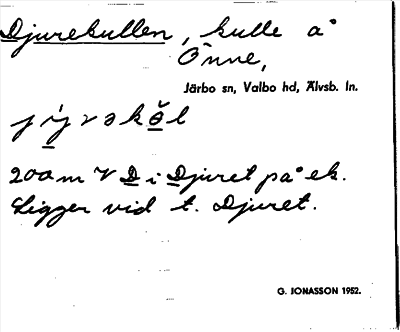 Djurekullen, kulle å
Önne,
Järbo sn, Valbo hd, Älvsb. ln.
jý̱rəkø̱̀l
200 m V D i Djuret på ek.
Ligger vid t. Djuret.
G. JONASSON 1952.